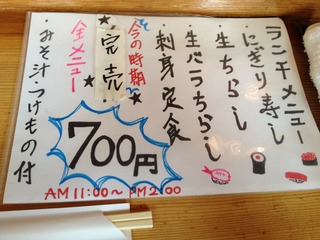 ランチメニュー
・にぎり寿し
・生ちらし
・生バラちらし
・刺身定食
今の時期
完売
★全メニュー★
700円
・みそ汁・つけもの付
AM 11:00〜PM 2:00